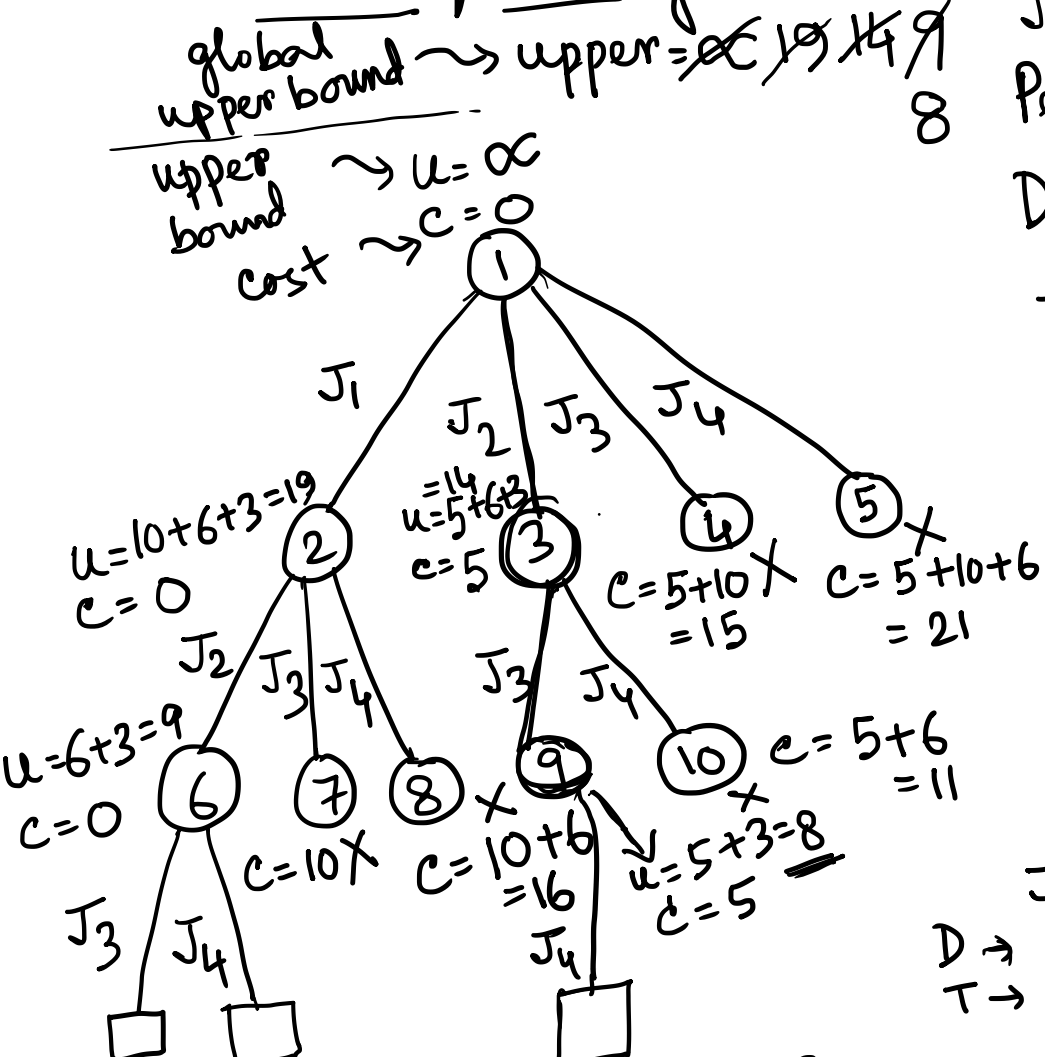 global
upper bound → upper = ∝ 19 14 9
8
upper
bound → u = ∝
cost → c = 0
1
J1
J2
J3
J4
u = 10+6+3 = 19
c = 0
2
= 14
u = 5+6+3
c = 5
3
4
c = 5+10
= 15
5
c = 5+10+6
= 21
J2
J3
J4
J3
J4
u = 6+3 = 9
c = 0
6
7
c = 10
8
c = 10+6
= 16
9
u = 5+3 = 8
c = 5
10
c = 5+6
= 11
J3
J4
J4
D →
T →